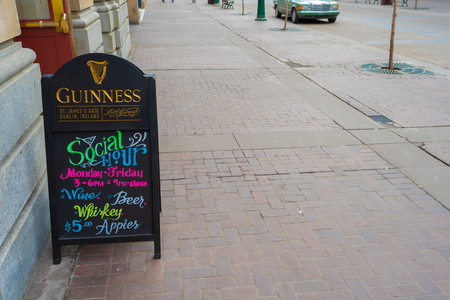 GUINNESS
ST. JAMES'S GATE
DUBLIN, IRELAND
Social
Hour
Monday-Friday
3-6PM & 9PM-close
Wine Beer
Whiskey
$5.00 Appies